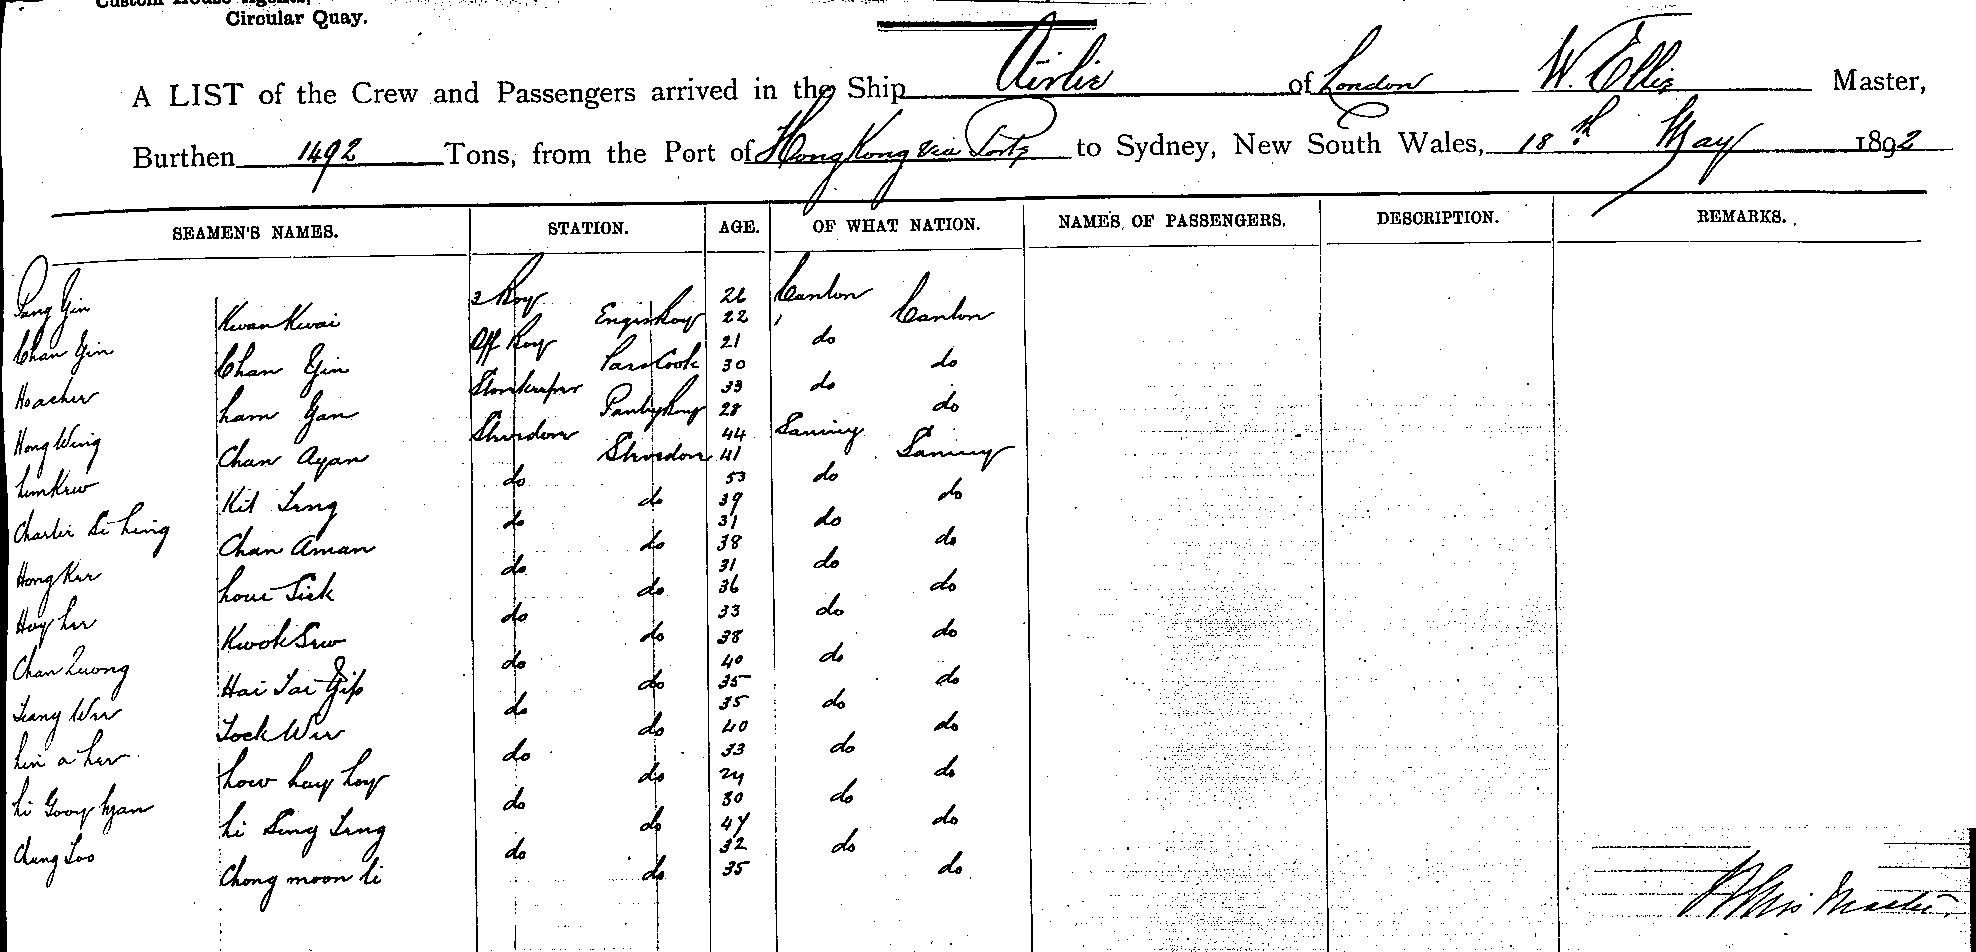 Custom House Agents,
Circular Quay.
A LIST of the Crew and Passengers arrived in the Ship Airlie of London W. Ellis Master,
Burthen 1492 Tons, from the Port of Hong Kong via Ports to Sydney, New South Wales, 18th May 1892
SEAMEN'S NAMES. STATION. AGE. OF WHAT NATION. NAMES OF PASSENGERS. DESCRIPTION. REMARKS.
Pang Yin 2 Boy 26 Canton
Kwan Kwai Engrs Boy 22 Canton
Chan Yin Off Boy 21 do
Chan Yin Pass Cook 30 do
Storekeeper 33 do
Lam Yan Pantry Boy 28 do
Hong Wing 44
Chan Ayan 41
Lum Kew do 53 do
Kit Leng do 39 do
Charlie Se Ling do 31 do
Chan Aman do 38 do
Hong Kee do 31 do
Low Sick do 36 do
Hoy Lee do 33 do
Kwok Sew do 38 do
Chan Quong do 40 do
Hai Tai Yip do 35 do
Leang Wee do 35 do
Tock Wee do 40 do
Lin a Lee do 33 do
Low Lay Loy do 24 do
Li Gooy do 30 do
Li Sing Leng do 47 do
Chung Loo do 32 do
Chong moon Li do 35 do
W Ellis Master.